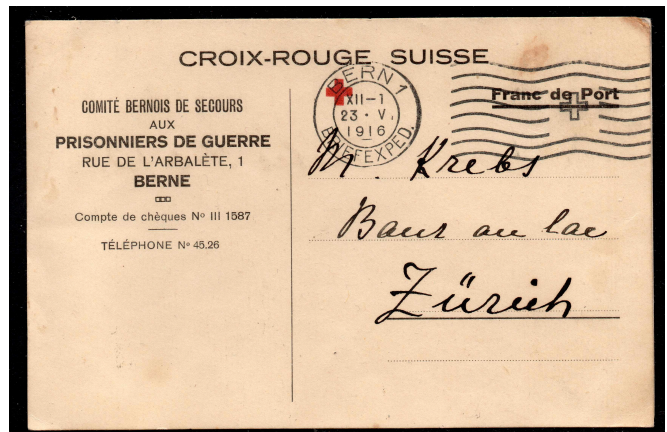 CROIX-ROUGE SUISSE
COMITÉ BERNOIS DE SECOURS
AUX
PRISONNIERS DE GUERRE
RUE DE L'ARBALÈTE, 1
BERNE
Compte de chèques Nº III 1587
TÉLÉPHONE Nº 45.26
BERN 1
XII-1
23 · V.
1916
BRIEFEXPED.
Franc de Port
M. Krebs
Baur au lac
Zürich